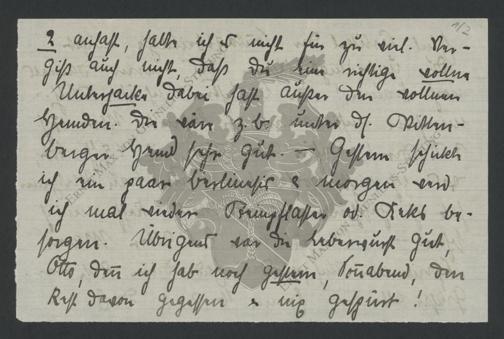 1/2
2 anhast, halte ich 5 nicht für zu viel. Ver-
giß auch nicht, daß Du eine richtige wollne
Unterjacke dabei hast außer den wollnen
Hemden. Die wär z.b. unter d. Witten-
berger Hemd sehr gut. – Gestern schickte
ich ein paar berlinesis & morgen werd
ich mal wieder Brustpflaster od. Keks be-
sorgen. Übrigens war die Leberwurst gut,
Otto, denn ich hab noch gestern, Sonnabend, den
Rest davon gegessen & nix gespürt!